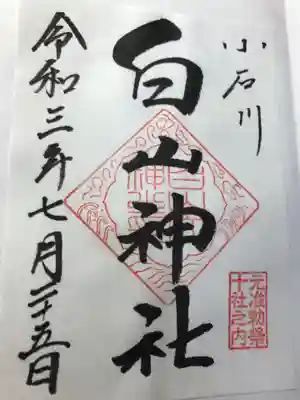 小石川
白山神社
元准勅祭
十社之内
令和三年七月二十五日